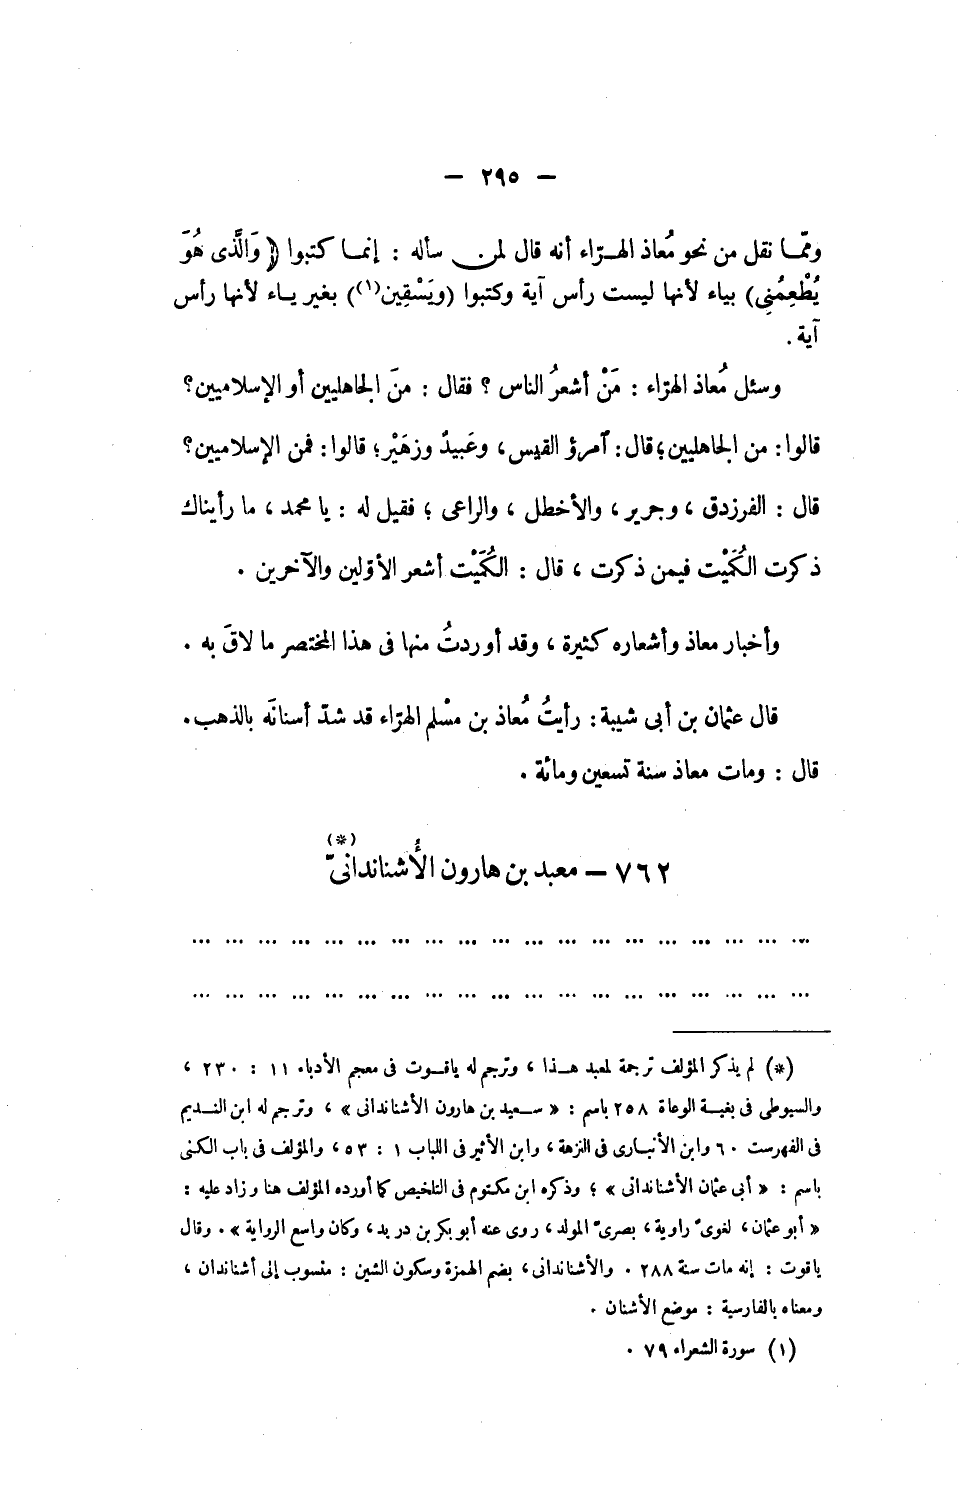 — ٢٩٥ —
وممّا نقل من نحو مُعاذ الهرّاء أنه قال لمن سأله : إنما كتبوا (وَالَّذى هُوَ
يُطْعِمُنِى) بياء لأنها ليست رأس آية وكتبوا (ويَسْقِين(١)) بغير ياء لأنها رأس
آية .
وسئل مُعاذ الهرّاء : مَنْ أشعرُ الناس ؟ فقال : منَ الجاهليين أو الإسلاميين؟
قالوا : من الجاهليين؛ قال : آمرؤ القيس، وعَبيدٌ وزهَيْر؛ قالوا : فمن الإسلاميين؟
قال : الفرزدق ، وجرير ، والأخطل ، والراعى ؛ فقيل له : يا محمد ، ما رأيناك
ذكرت الكُمَيْت فيمن ذكرت ، قال : الكُمَيْت أشعر الأوّلين والآخرين .
وأخبار معاذ وأشعاره كثيرة ، وقد أوردتُ منها فى هذا المختصر ما لاقَ به .
قال عثمان بن أبى شيبة : رأيتُ مُعاذ بن مسْلم الهرّاء قد شدّ أسنانَه بالذهب.
قال : ومات معاذ سنة تسعين ومائة .
٧٦٢ – معبد بن هارون الأُشناندانىّ(*)
... ... ... ... ... ... ... ... ... ... ... ... ... ... ... ... ... ... ...
... ... ... ... ... ... ... ... ... ... ... ... ... ... ... ... ... ... ...
(*) لم يذكر المؤلف ترجمة لمعبد هذا ، وترجم له ياقوت فى معجم الأدباء ١١ : ٢٣٠ ،
والسيوطى فى بغية الوعاة ٢٥٨ باسم : « سعيد بن هارون الأشناندانى » ، وترجم له ابن النديم
فى الفهرست ٦٠ وابن الأنبارى فى النزهة، وابن الأثير فى اللباب ١ : ٥٣، والمؤلف فى باب الكنى
باسم : « أبى عثمان الأشناندانى » ؛ وذكره ابن مكتوم فى التلخيص كما أورده المؤلف هنا وزاد عليه :
« أبو عثمان، لغوىّ راوية، بصرىّ المولد، روى عنه أبو بكر بن دريد، وكان واسع الرواية » . وقال
ياقوت : إنه مات سنة ٢٨٨ . والأشناندانى، بضم الهمزة وسكون الشين : منسوب إلى أشناندان ،
ومعناه بالفارسية : موضع الأشنان .
(١) سورة الشعراء ٧٩ .